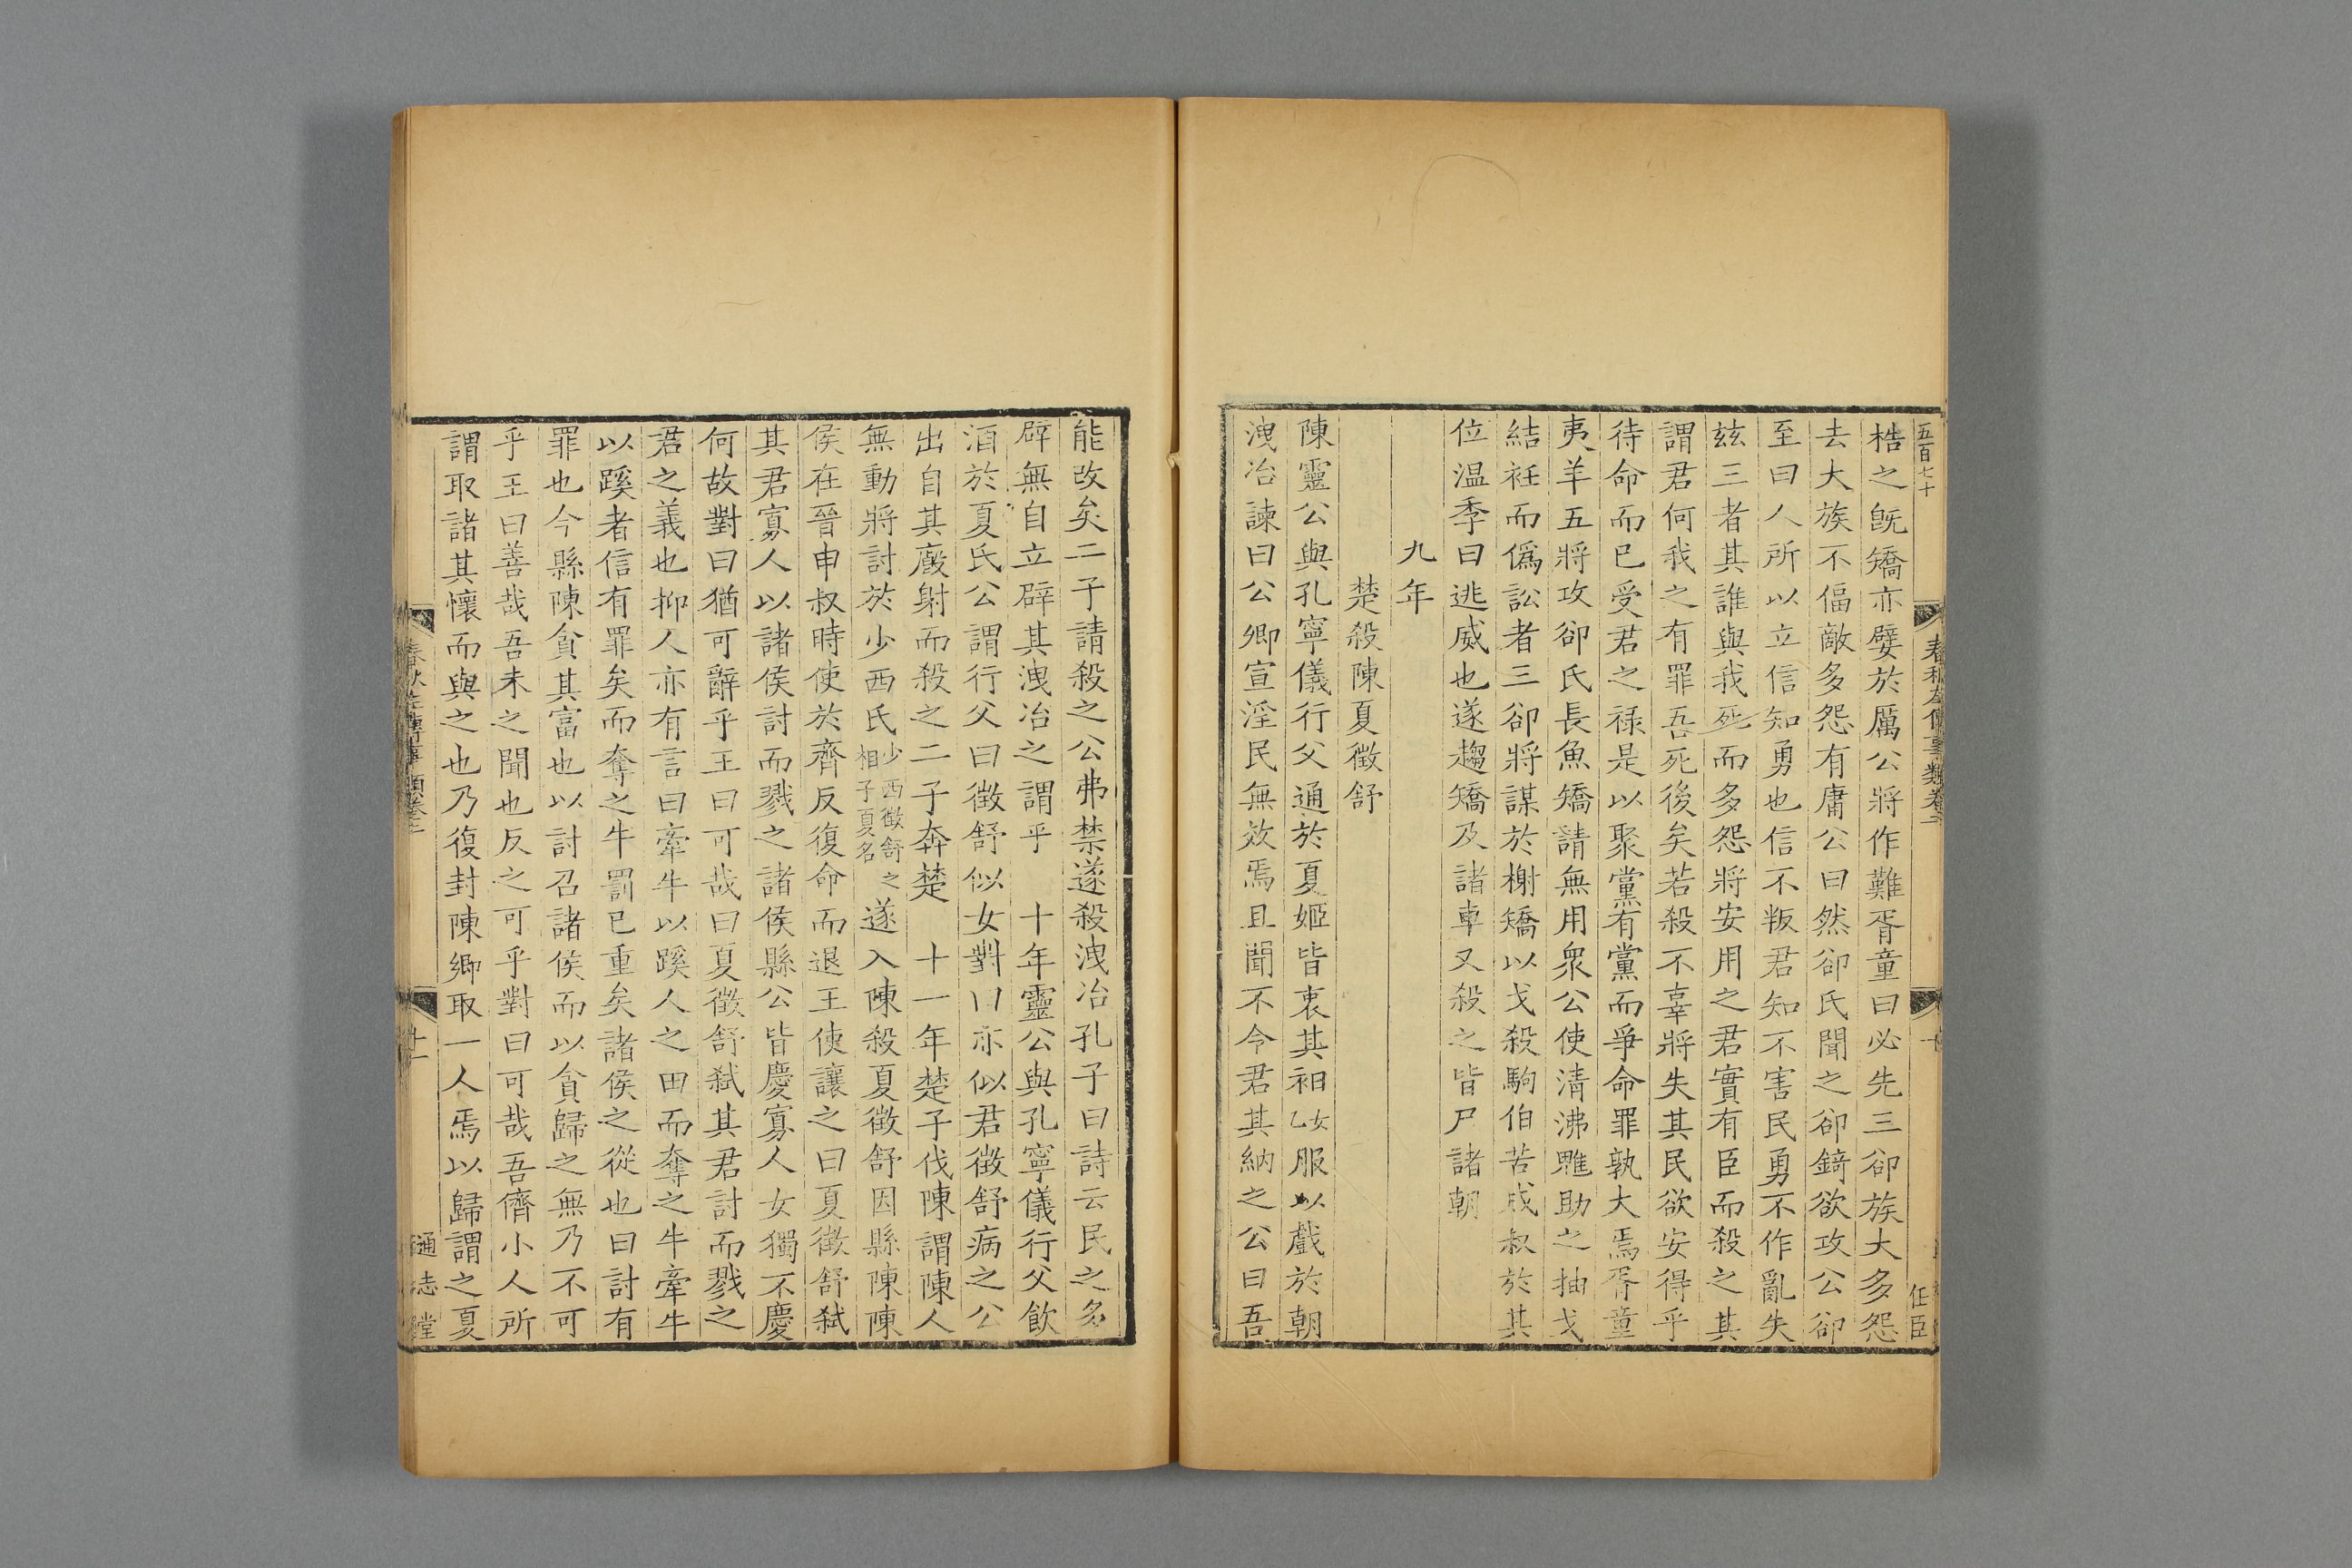 五百七十
梏之旣矯亦嬖於厲公將作難胥童曰必先三郤族大多怨
去大族不偪敵多怨有庸公曰然郤氏聞之郤錡欲攻公郤
至曰人所以立信知勇也信不叛君知不害民勇不作亂失
玆三者其誰與我死而多怨將安用之君實有臣而殺之其
謂君何我之有罪吾死後矣若殺不辜將失其民欲安得乎
待命而已受君之祿是以聚黨有黨而爭命罪孰大焉胥童
夷羊五將攻郤氏長魚矯請無用衆公使清沸魋助之抽戈
結衽而僞訟者三郤將謀於榭矯以戈殺駒伯苦成叔於其
位温季曰逃威也遂趨矯及諸車又殺之皆尸諸朝
九年
楚殺陳夏徵舒
陳靈公與孔寧儀行父通於夏姬皆衷其衵女乙服以戲於朝
洩冶諫曰公卿宣淫民無效焉且聞不令君其納之公曰吾
任臣
能改矣二子請殺之公弗禁遂殺洩冶孔子曰詩云民之多
辟無自立辟其洩冶之謂乎 十年靈公與孔寧儀行父飲
酒於夏氏公謂行父曰徵舒似女對曰亦似君徵舒病之公
出自其廄射而殺之二子奔楚 十一年楚子伐陳謂陳人
無動將討於少西氏少西徵舒之相子夏名遂入陳殺夏徵舒因縣陳陳
侯在晉申叔時使於齊反復命而退王使讓之曰夏徵舒弑
其君寡人以諸侯討而戮之諸侯縣公皆慶寡人女獨不慶
何故對曰猶可辭乎王曰可哉曰夏徵舒弑其君討而戮之
君之義也抑人亦有言曰牽牛以蹊人之田而奪之牛牽牛
以蹊者信有罪矣而奪之牛罰已重矣諸侯之從也曰討有
罪也今縣陳貪其富也以討召諸侯而以貪歸之無乃不可
乎王曰善哉吾未之聞也反之可乎對曰可哉吾儕小人所
謂取諸其懷而與之也乃復封陳鄉取一人焉以歸謂之夏
通志堂